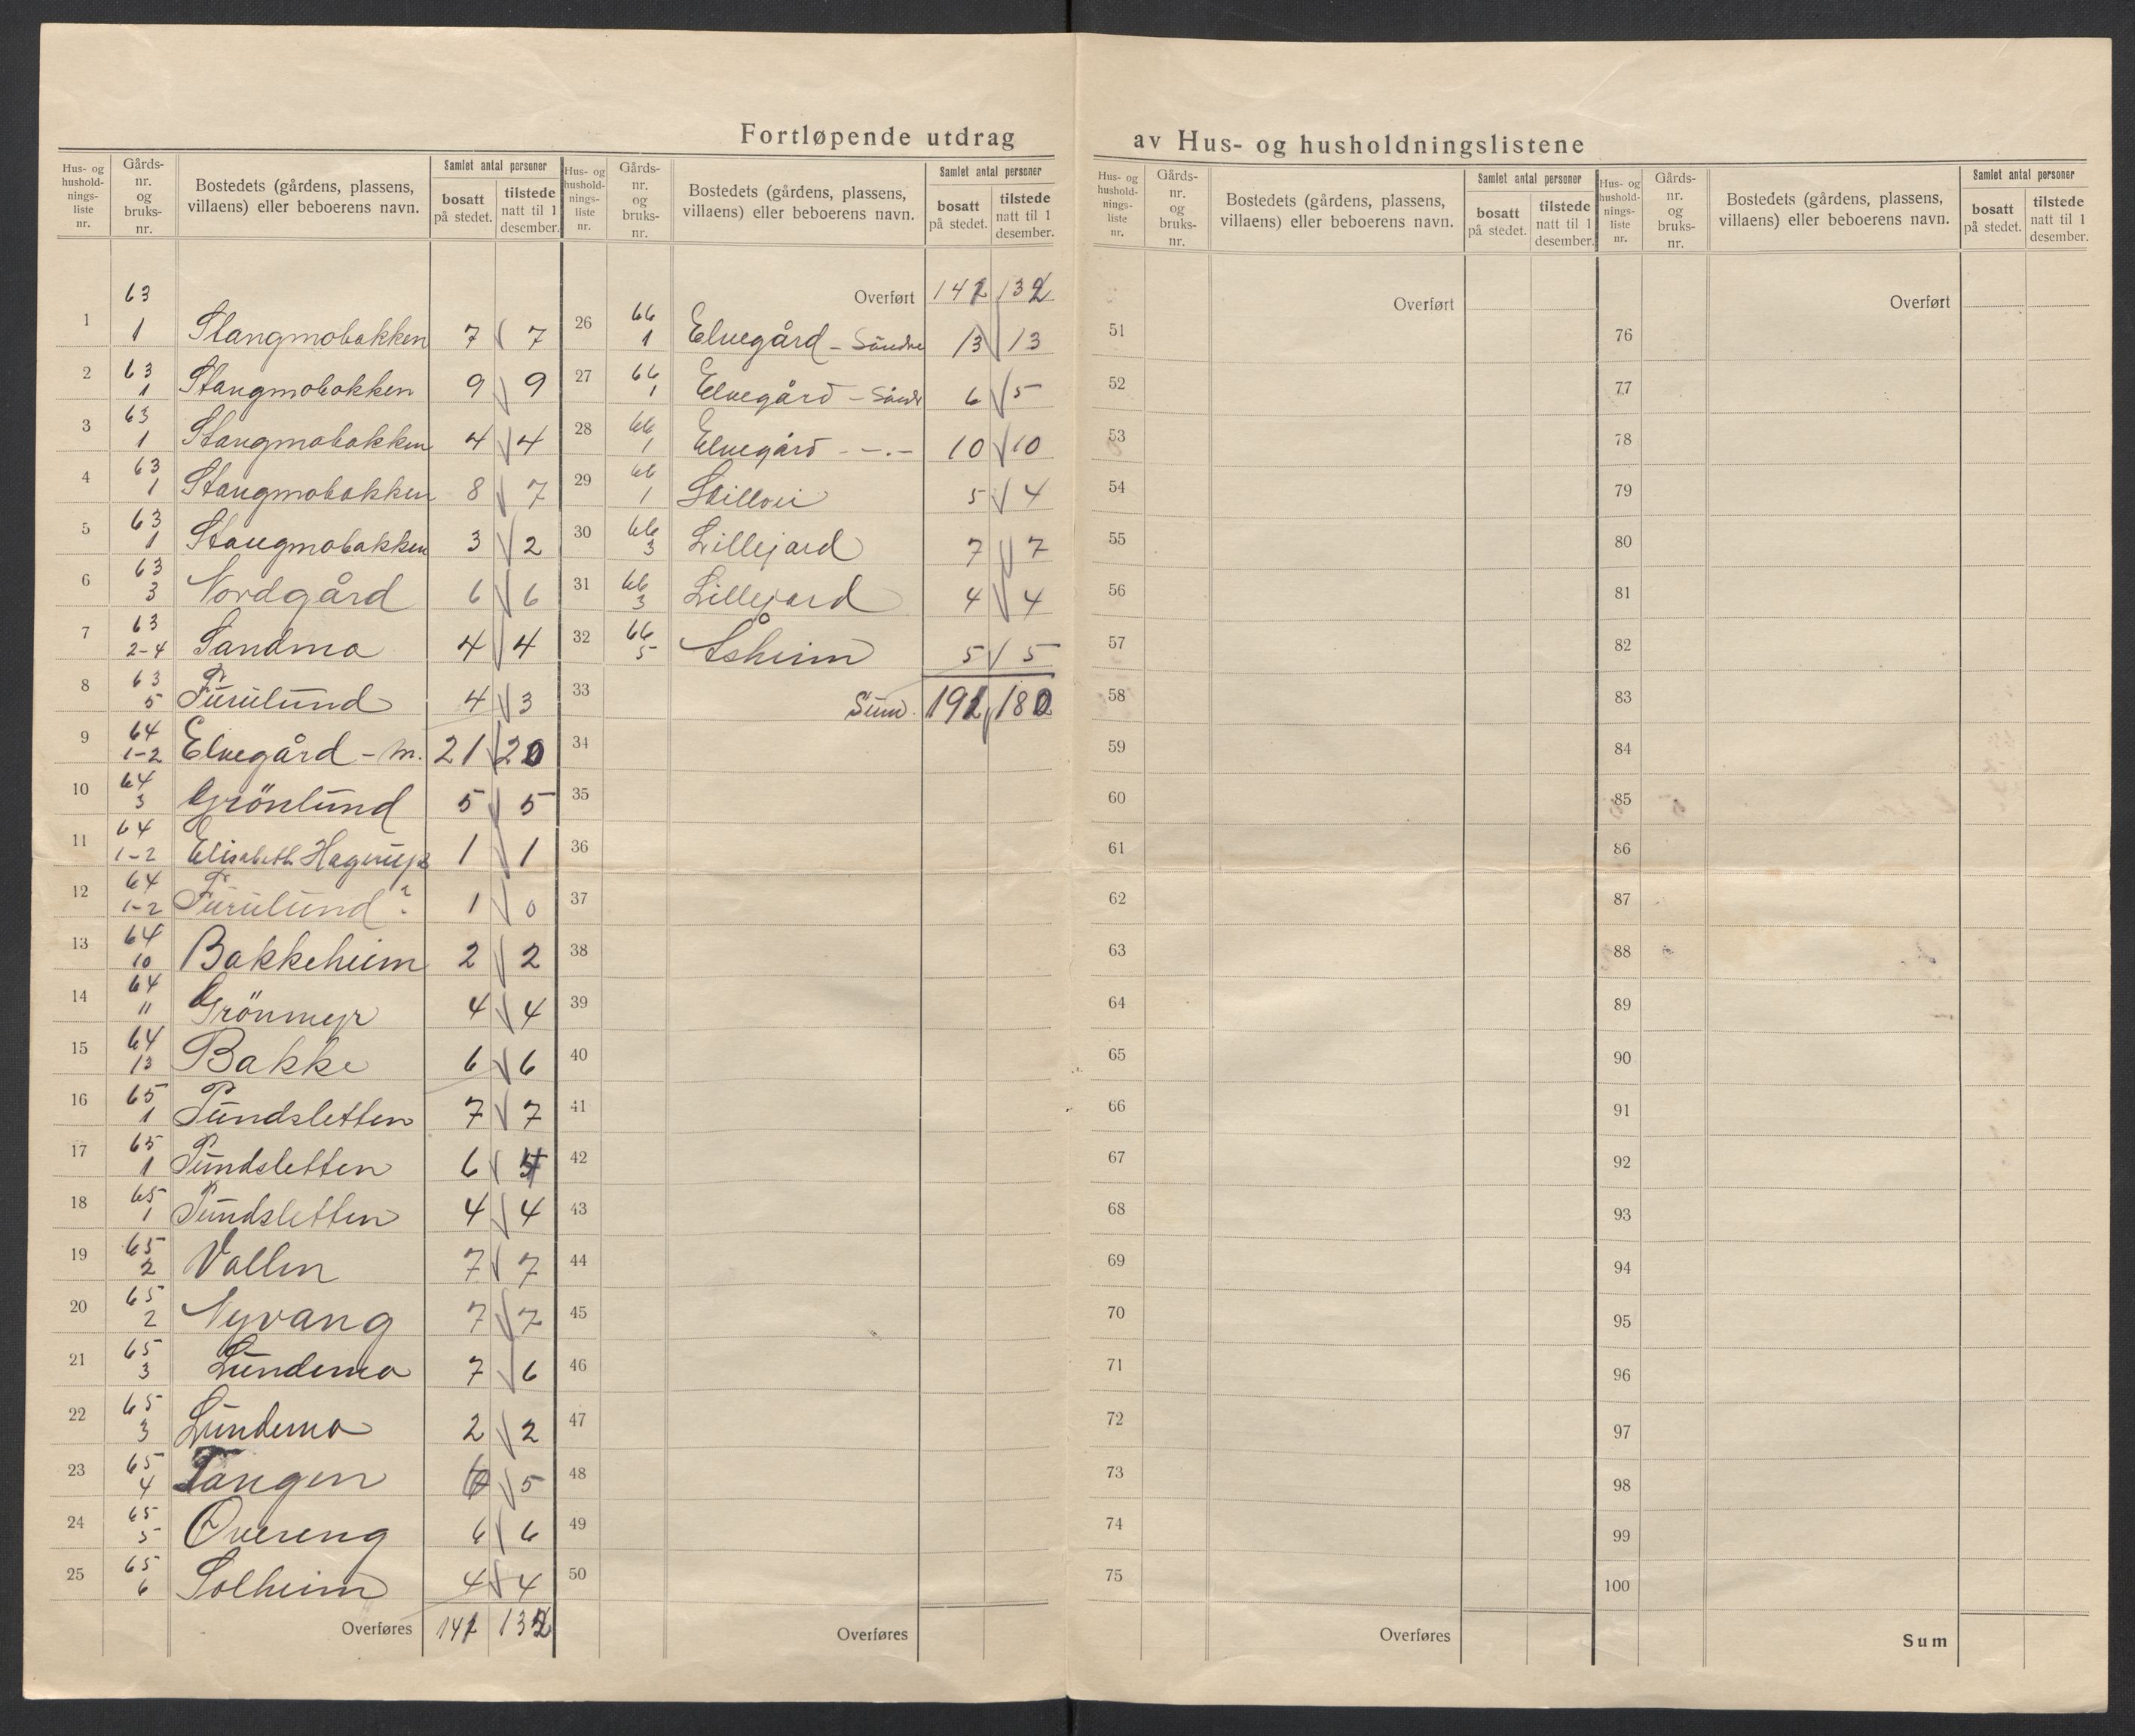 Fortløpende utdrag av Hus- og husholdningslistene
Hus- og hushold-nings-liste nr. Gårds-nr. og bruks-nr. Bostedets (gårdens, plassens, villaens) eller beboerens navn. Samlet antal personer bosatt på stedet. tilstede natt til 1 desember.
1 63 1 Stangmobakken 7 7
2 63 1 Stangmobakken 9 9
3 63 1 Stangmobakken 4 4
4 63 1 Stangmobakken 8 7
5 63 1 Stangmobakken 3 2
6 63 3 Nordgård 6 6
7 63 2-4 Sandmo 4 4
8 63 5 Furulund 4 3
9 64 1-2 Elvegård - m. 21 20
10 64 3 Grönlund 5 5
11 64 1-2 Elisabeth Hagerup 1 1
12 64 1-2 Furulund ? 1 0
13 64 10 Bakkeheim 2 2
14 64 11 Grönmyr 4 4
15 64 13 Bakke 6 6
16 65 1 Pundsletten 7 7
17 65 1 Pundsletten 6
18 65 1 Pundsletten 4 4
19 65 2 Vollen 7 7
20 65 2 Nyvang 7 7
21 65 3 Lundemo 7 6
22 65 3 Lundemo 2 2
23 65 4 Tangen 5
24 65 5 Övereng 6 6
25 65 6 Solheim 4 4
Overføres
Hus- og hushold-nings-liste nr. Gårds-nr. og bruks-nr. Bostedets (gårdens, plassens, villaens) eller beboerens navn. Samlet antal personer bosatt på stedet. tilstede natt til 1 desember.
Overført
26 66 1 Elvegård - Söndre 13 13
27 66 1 Elvegård - Söndr 6 5
28 66 1 Elvegård - -.- 10 10
29 66 1 5 4
30 66 3 Lillejord 7 7
31 66 3 Lillejord 4 4
32 66 5 Åsheim 5 5
33 Sum.
34
35
36
37
38
39
40
41
42
43
44
45
46
47
48
49
50
Overføres
Hus- og hushold-nings-liste nr. Gårds-nr. og bruks-nr. Bostedets (gårdens, plassens, villaens) eller beboerens navn. Samlet antal personer bosatt på stedet. tilstede natt til 1 desember.
Overført
51
52
53
54
55
56
57
58
59
60
61
62
63
64
65
66
67
68
69
70
71
72
73
74
75
Overføres
Hus- og hushold-nings-liste nr. Gårds-nr. og bruks-nr. Bostedets (gårdens, plassens, villaens) eller beboerens navn. Samlet antal personer bosatt på stedet. tilstede natt til 1 desember.
Overført
76
77
78
79
80
81
82
83
84
85
86
87
88
89
90
91
92
93
94
95
96
97
98
99
100
Sum